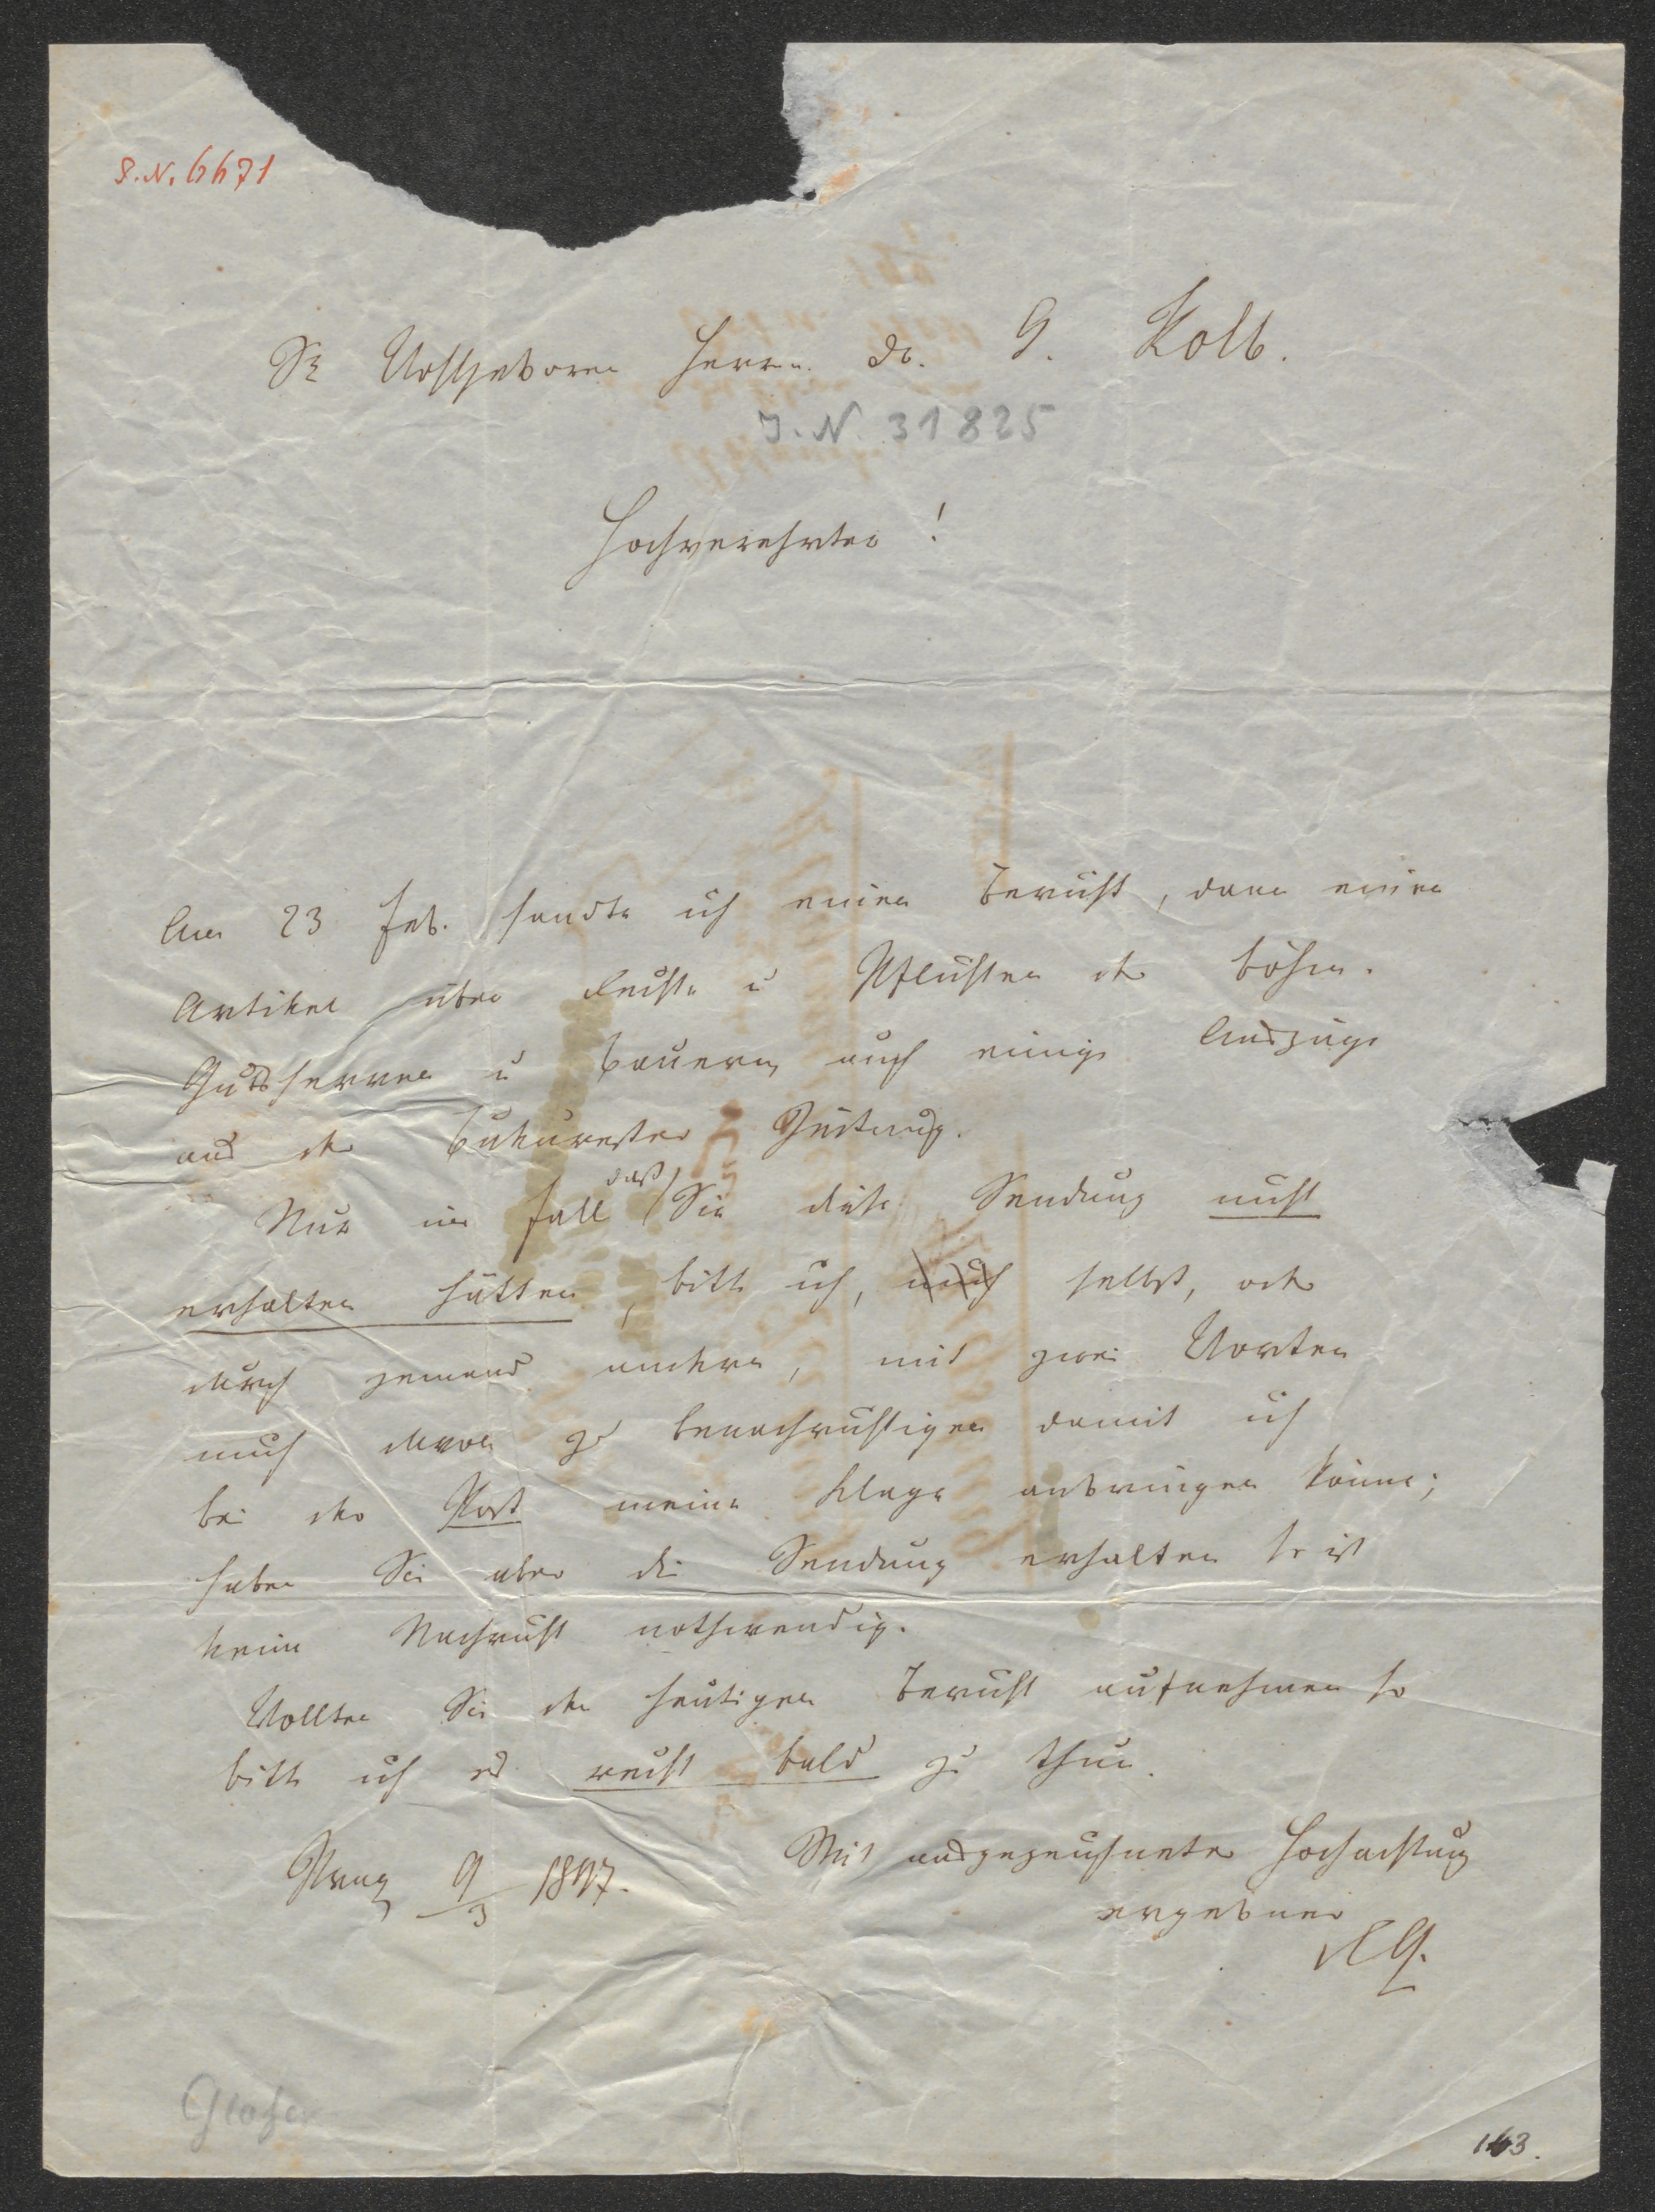 S.N. 6671
Sr Wohlgeboren Herrn Dr. G. Kolb.
J.N. 31825
Hochverehrter!
Am 23 Feb. sandte ich einen Bericht, dann einen
Artikel über Rechte u Pflichten der böhm.
Gutsherren u Bauern, auch einige Auszüge
aus der Bukurester Zeitung.
Nur im Fall daß Sie diese Sendung nicht
erhalten hätten, bitte ich, mich selbst, oder
durch jemand andern, mit zwei Worten
mich davon zu benachrichtigen damit ich
bei der Post meine Klage anbringen könne;
haben Sie aber die Sendung erhalten so ist
keine Nachricht nothwendig.
Wollten Sie den heutigen Bericht aufnehmen so
bitte ich es recht bald zu thun.
Prag 9/3 1847. Mit ausgezeichneter Hochachtung
ergebner
RG.
Glaser
163.